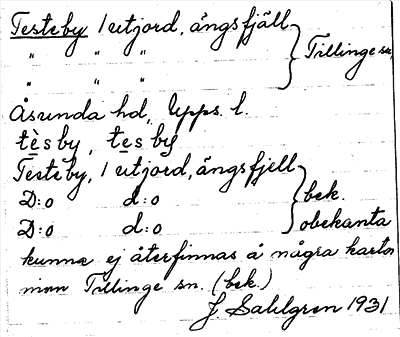 Testeby 1 utjord, ängsfjäll
" " " } Tillinge sn,
" " "
Åsunda hd, Upps. l.
tèsby, tesby
Testeby, 1 utjord, ängsfjell
D:o d:o } bek.
D:o d:o obekanta
kunna ej återfinnas å några kartor
inom Tillinge sn. (bek.)
J Sahlgren 1931